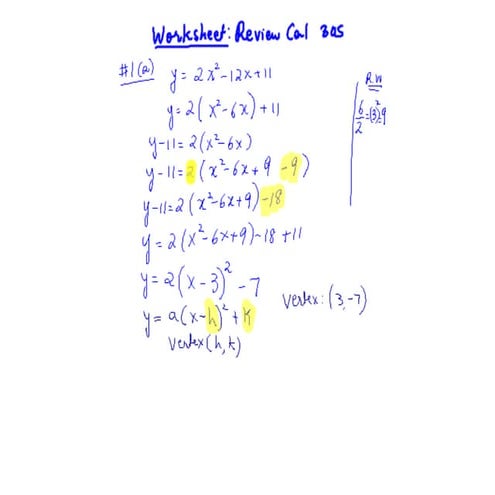 Worksheet: Review Cal 305
#1(a) y = 2x² - 12x + 11
R.W
y = 2(x² - 6x) + 11
6/2 = (3)² = 9
y - 11 = 2(x² - 6x)
y - 11 = 2(x² - 6x + 9 - 9)
y - 11 = 2(x² - 6x + 9) - 18
y = 2(x² - 6x + 9) - 18 + 11
y = 2(x - 3)² - 7
Vertex: (3, -7)
y = a(x - h)² + k
Vertex (h, k)